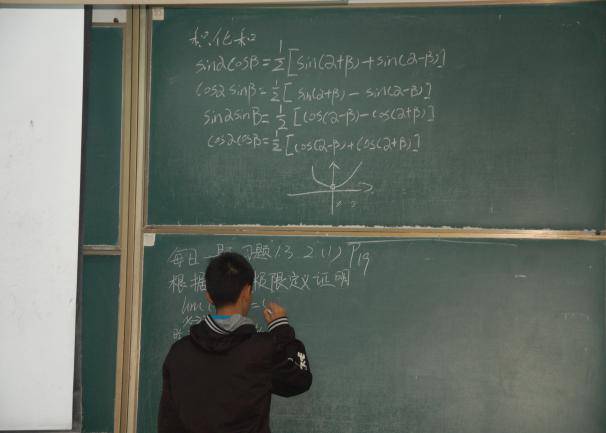 积化和
sinαcosβ=½[sin(α+β)+sin(α-β)]
cosα sinβ=½[sin(α+β)-sin(α-β)]
sinαsinβ=½[cos(α-β)-cos(α+β)]
cosαcosβ=½[cos(α-β)+cos(α+β)]
每日一题 习题1.3 2(1) P19
根据 极限定义证明
lim =